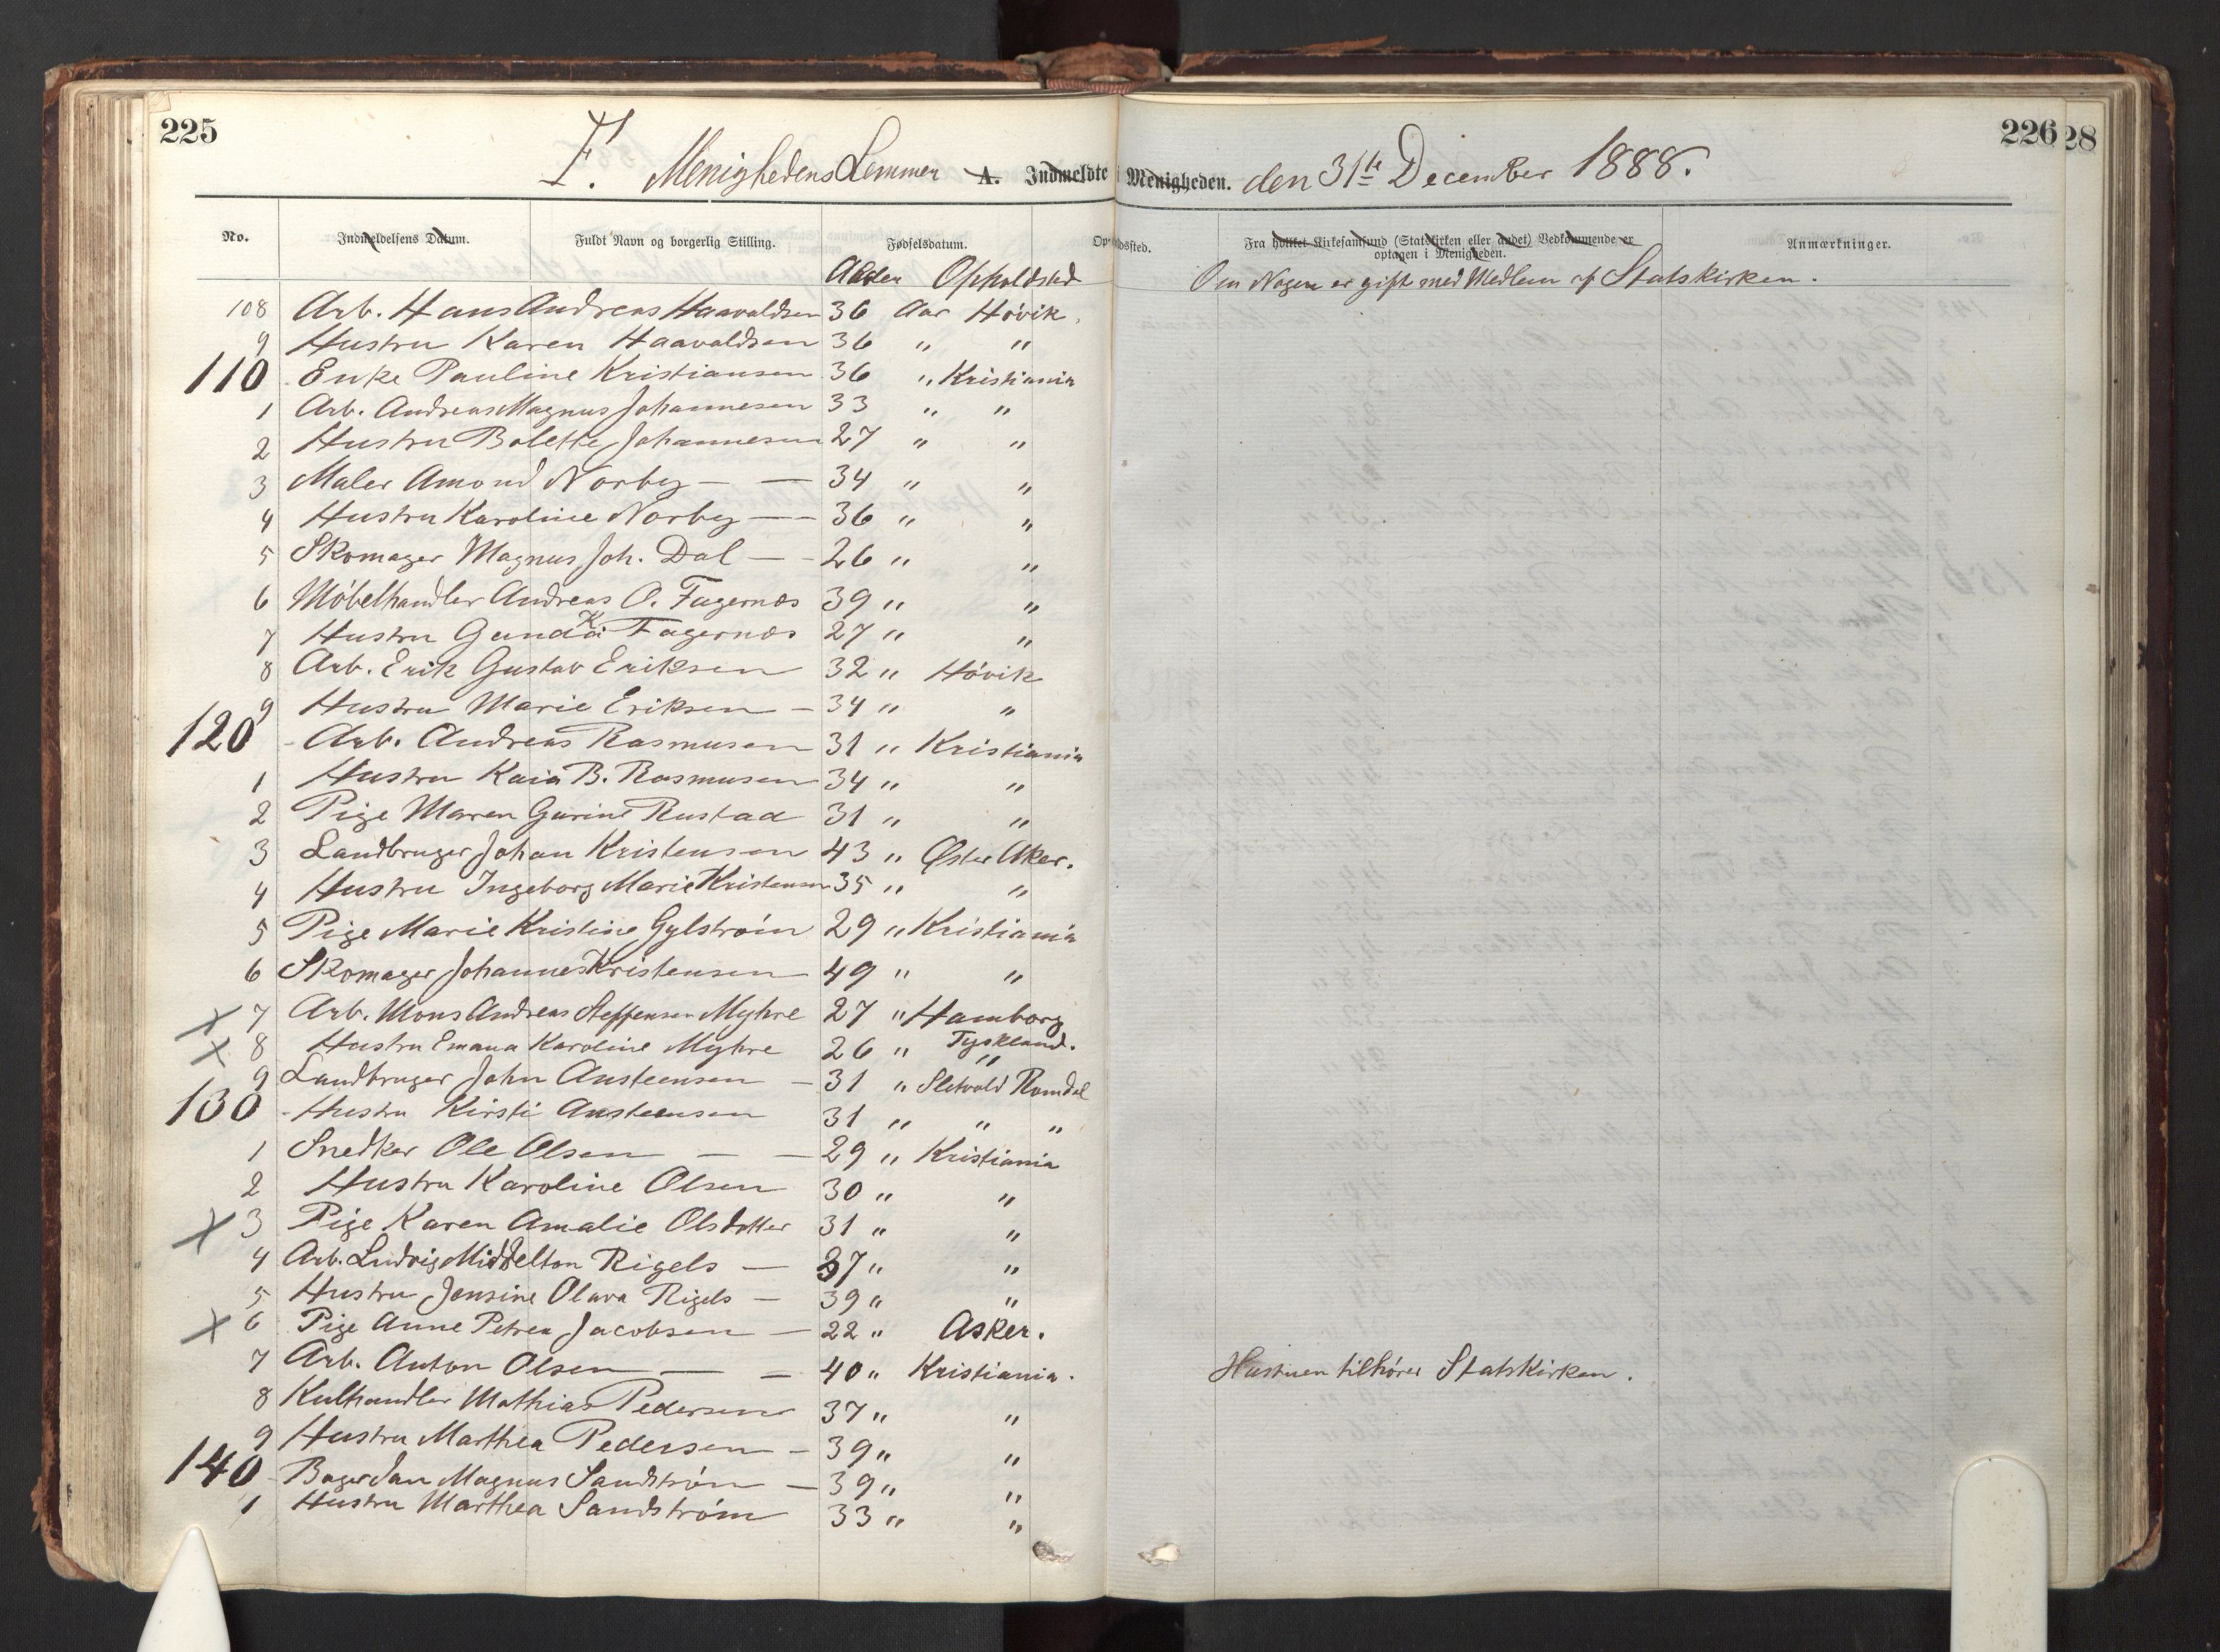 225
226 28
F. Menighedens Lemmer A. Indmeldte i Menigheden. den 31te December 1888.
No. Indmeldelsens Datum. Fuldt Navn og borgerlig Stilling. Fødselsdatum. Opholdssted. Fra hvilket Kirkesamfund (Statskirken eller andet) Vedkommende er Anmærkninger.
optagen i Menigheden.
Alder Opholdsted Om Nogen er gift med Medlem af Statskirken.
108 Arb. Hans Andreas Haavaldsen 36 Aar Høvik.
9 Hustru Karen Haavaldsen 36 " "
110 Enke Pauline Kristiansen 36 " Kristiania
1 Arb. Andreas Magnus Johannesen 33 " "
2 Hustru Bolette Johannesen 27 " "
3 Maler Amond Norby — — 34 " "
4 Hustru Karoline Norby — — 36 " "
5 Skomager Magnus Joh. Dal — - 26 " "
6 Møbelhandler Andreas O. Fagernæs 39 " "
7 Hustru Gunda K Fagernæs 27 " "
8 Arb. Erik Gustav Eriksen 32 " Høvik
9 Hustru Marie Eriksen — 34 " "
120 - Arb. Andreas Rasmusen 31 " Kristiania
1 Hustru Kaia B. Rasmusen 34 " "
2 Pige Maren Gurine Rustad 31 " "
3 Landbruger Johan Kristensen 43 " Øster Aker.
4 Hustru Ingeborg Marie Kristensen 35 " "
5 Pige Marie Kristine Gylstrøm 29 " Kristiania
6 Skomager Johannes Kristensen 49 " "
x 7 Arb. Mons Andreas Steffensen Myhre 27 " Hamborg
Tyskland.
x 8 Hustru Emma Karoline Myhre 26 " "
9 Landbruger John Austeensen — 31 " Sletvold Romdal
130 - Hustru Kirsti Austeensen 31 " " "
1 Snedker Ole Olsen — — 29 " Kristiania
2 Hustru Karoline Olsen 30 " "
x 3 Pige Karen Amalie Olsdotter 31 " "
4 Arb. Ludvig Middelton Rigels — 37 " "
5 Hustru Jensine Olava Rigels — 39 " "
x 6 Pige Anne Petrea Jacobsen — 22 " Asker.
7 Arb. Anton Olsen — — 40 " Kristiania. Hustruen tilhører Statskirken.
8 Kulhandler Mathias Pedersen 37 " "
9 Hustru Marthea Pedersen — 39 " "
140 - Bager Jan Magnus Sandstrøm — 39 " "
1 Hustru Marthea Sandstrøm 33 " "